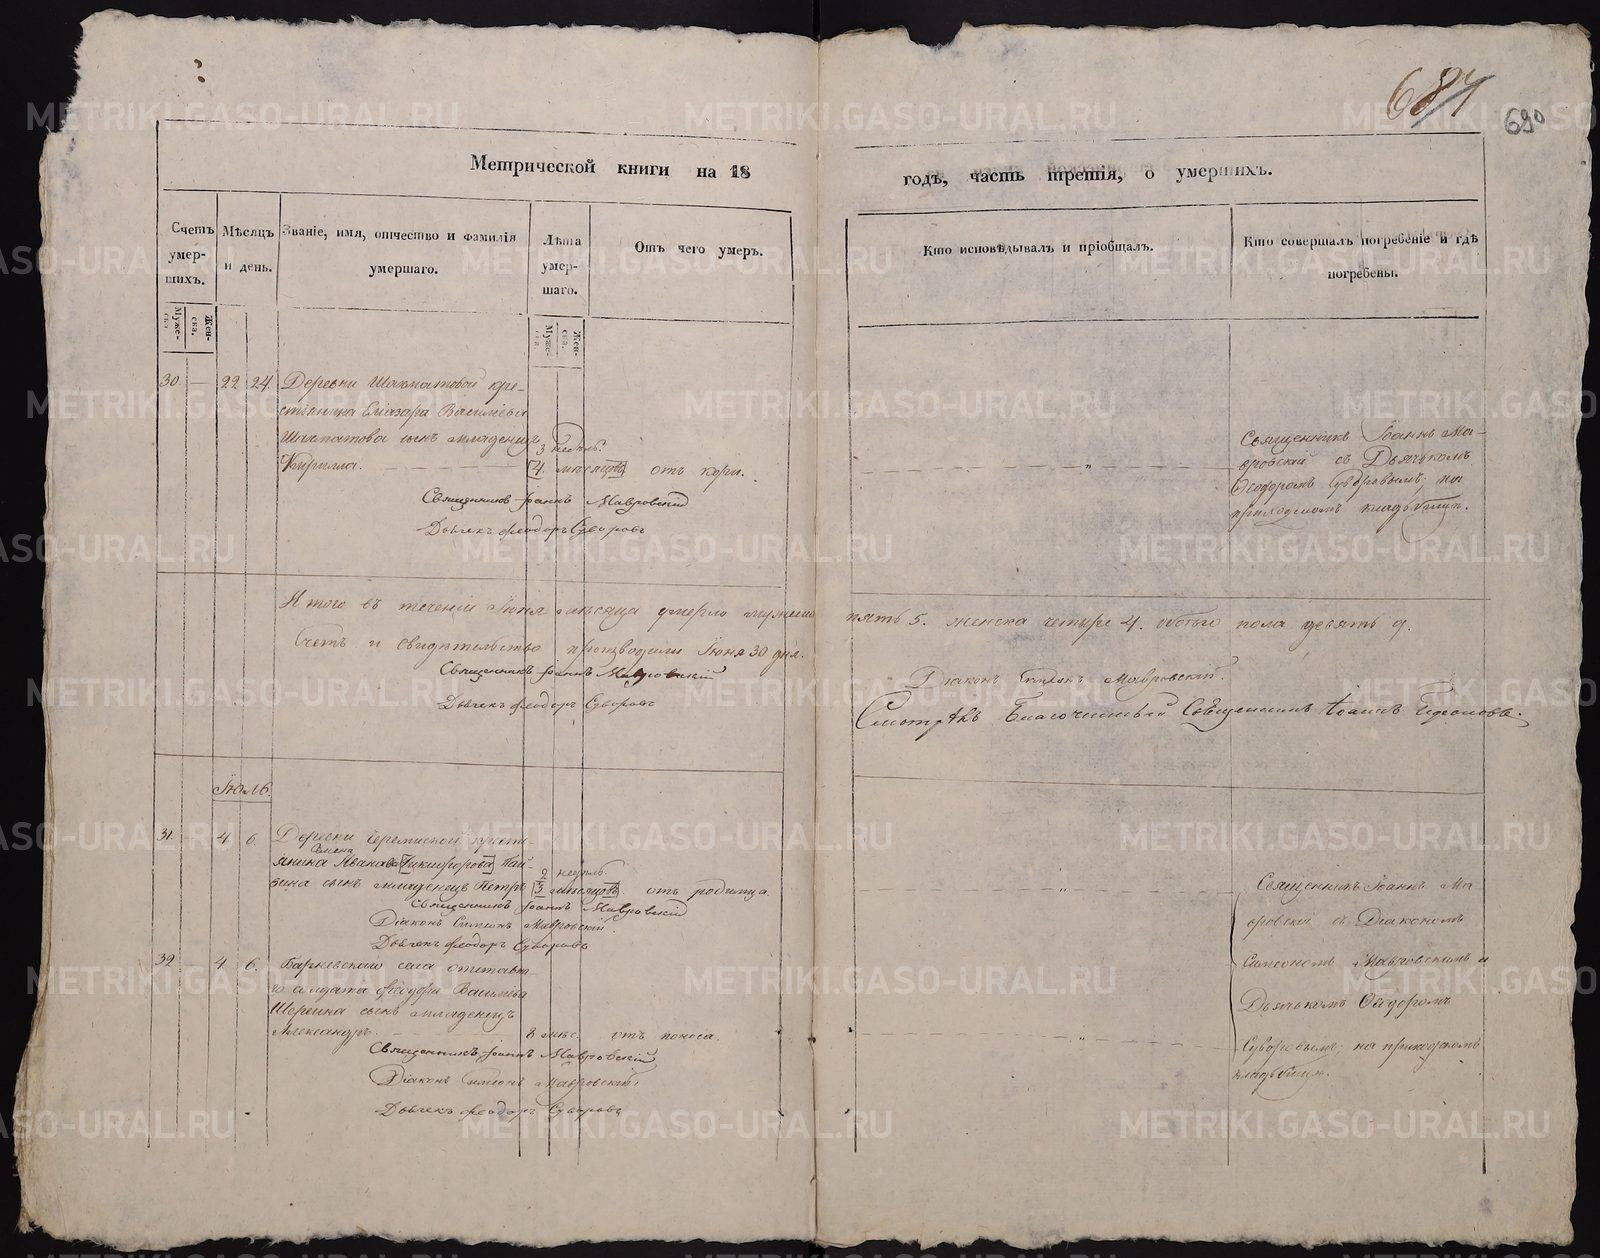 684
690
Метрической книги на 18
годъ, часть третія, о умершихъ.
Счетъ умер-шихъ.
Мѣсяцъ и день.
Званіе, имя, отчество и фамилія умершаго.
Лѣта умер-шаго.
Отъ чего умеръ.
Кто исповѣдывалъ и пріобщалъ.
Кто совершалъ погребеніе и гдѣ погребены.
Муже-ска.
Жен-ска.
Муже-ска.
Жен-ска.
30 — 22 24. Деревни Шахматовой кре-
стьянина Еліазара Васильева
Шахматова сынъ младенецъ
Кирилла.
3 недѣль.
[4. мѣсяцовъ] отъ кори.
Священникъ Іоаннъ Мавровскій
Дьячекъ Ѳеодоръ Суворовъ
Священникъ Іоаннъ Ма-
вровскій съ Дьячкомъ
Ѳеодоромъ Суворовымъ; на
приходскомъ кладбищѣ.
Итого въ теченіи Іюня мѣсяца умерло мужеска пять 5. женска четыре 4. обоего пола девять 9.
Счетъ и свидѣтельство производили Іюня 30 дня.
Священникъ Іоаннъ Мавровскій
Діаконъ Симеонъ Мавровскій.
Дьячекъ Ѳеодоръ Суворовъ
Смотрѣлъ Благочинный Священникъ Іоаннъ
Іюль.
31. — 4 6. Деревни Черемиской крестья-
янина Семена Иванова [Никифорова]
сынъ младенецъ Петръ
2 недѣль.
[3 мѣсяцовъ] отъ родимца.
Священникъ Іоаннъ Мавровскій
Діаконъ Симеонъ Мавровскій.
Дьячекъ Ѳеодоръ Суворовъ
32 — 4. 6. села отставна-
го солдата Ѳеодора Васильева
сынъ младенецъ
Александръ.
8 мѣс. отъ поноса.
Священникъ Іоаннъ Мавровскій
Діаконъ Симеонъ Мавровскій.
Дьячекъ Ѳеодоръ Суворовъ
Священникъ Іоаннъ Ма-
вровскій съ Діакономъ
Симеономъ Мавровскимъ и
Дьячкомъ Ѳеодоромъ
Суворовымъ; на приходскомъ
кладбищѣ.
METRIKI.GASO-URAL.RU